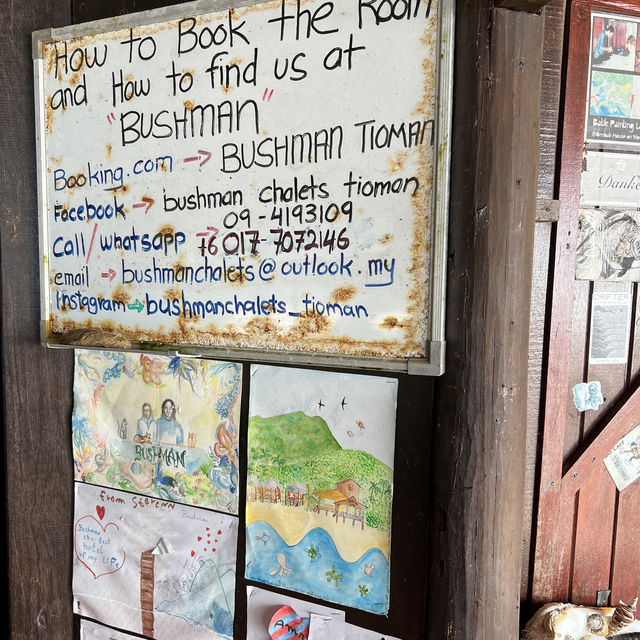 How to Book the Room
and How to find us at
"BUSHMAN"
Booking.com → BUSHMAN TIOMAN
Facebook → bushman chalets tioman
09-4193109
Call/whatsapp → +6 017-7072146
email → bushmanchalets@outlook.my
Instagram → bushmanchalets_tioman
BUSHMAN
from
Bushman
the Best
hotel
of my life
Batik Painting